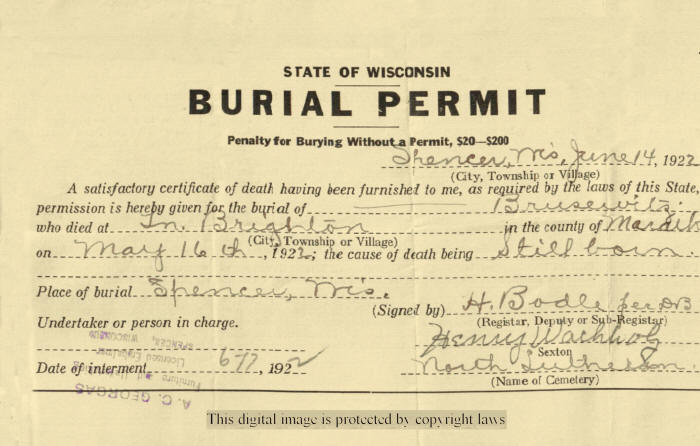 STATE OF WISCONSIN
BURIAL PERMIT
Penalty for Burying Without a Permit, $20—$200
Spencer, Wis, June 14, 1922
(City, Township or Village)
A satisfactory certificate of death having been furnished to me, as required by the laws of this State,
permission is hereby given for the burial of Brusewitz.
who died at In. Brighton in the county of
(City, Township or Village)
on May 16 th, 1922; the cause of death being Still born.
Place of burial Spencer, Wis.
(Signed by) H. Bodle per
(Registrar, Deputy or Sub-Registrar)
Undertaker or person in charge.
Henry Wachholz
Sexton
Date of interment 1922
North Lutheran.
(Name of Cemetery)
A. C. GEORGAS
Furniture and Undertaking
Licensed Embalmer
SPENCER, WISCONSIN
This digital image is protected by copyright laws